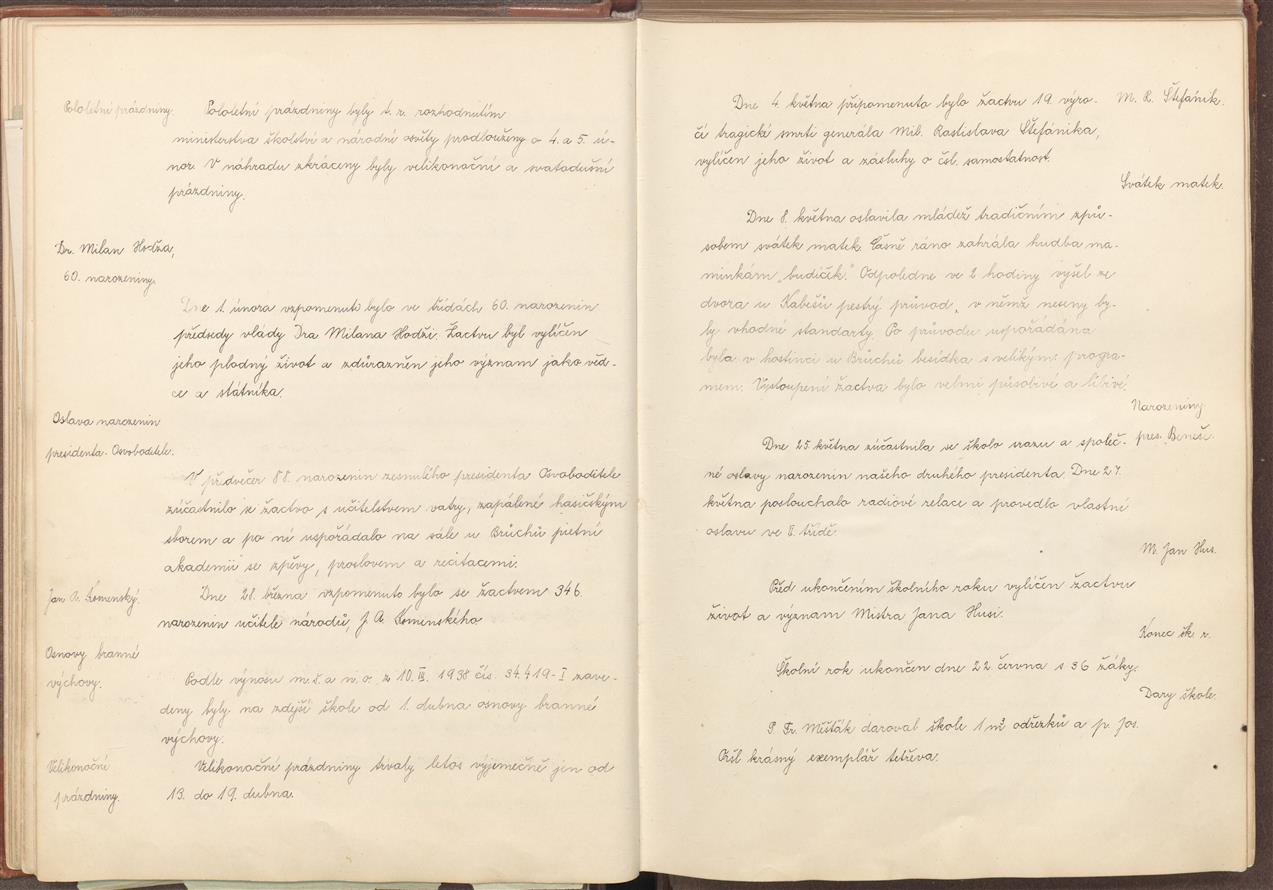 Pololetní prázdniny.
Pololetní prázdniny byly t. r. rozhodnutím
ministerstva školství a národní osvěty prodlouženy o 4. a 5. ú-
nor. V náhradu zkráceny byly velikonoční a svatodušní
prázdniny.
Dr. Milan Hodža,
60. narozeniny.
Dne 1. února vzpomenuto bylo ve třídách 60. narozenin
předsedy vlády Dra Milana Hodži. Žactvu byl vylíčen
jeho plodný život a zdůrazněn jeho význam jako věd-
ce a státníka.
Oslava narozenin
presidenta-Osvoboditele.
V předvečer 88. narozenin zesnulého presidenta Osvoboditele
zúčastnilo se žactvo s učitelstvem vatry, zapálené hasičským
sborem a po ní uspořádalo na sále u Brůchů pietní
akademii se zpěvy, proslovem a recitacemi.
Jan A. Komenský.
Dne 28. března vzpomenuto bylo se žactvem 346.
narozenin učitele národů, J. A. Komenského
Osnovy branné
výchovy.
Podle výnosu m. š. a n. o. z 10. III. 1938 čís. 34.419-I zave-
deny byly na zdejší škole od 1. dubna osnovy branné
výchovy.
Velikonoční
prázdniny.
Velikonoční prázdniny trvaly letos výjimečně jen od
13. do 19. dubna.
M. R. Štefánik.
Dne 4. května připomenuto bylo žactvu 19. výro-
čí tragické smrti generála Mil. Rastislava Štefánika,
vylíčen jeho život a zásluhy o čsl. samostatnost.
Svátek matek.
Dne 8. května oslavila mládež tradičním způ-
sobem svátek matek. Časně ráno zahrála hudba ma-
minkám "budíček." Odpoledne ve 2 hodiny vyšel ze
dvora u Kabešů pestrý průvod, v němž neseny by-
ly vhodné standarty. Po průvodu uspořádána
byla v hostinci u Brůchů besídka s velikým progra-
mem. Vystoupení žactva bylo velmi působivé a líbivé.
Narozeniny
pres. Beneše.
Dne 25. května zúčastnila se škola srazu a společ-
né oslavy narozenin našeho druhého presidenta. Dne 27.
května poslouchala radiové relace a provedla vlastní
oslavu ve II. třídě.
M. Jan Hus.
Před ukončením školního roku vylíčen žactvu
život a význam Mistra Jana Husi.
Konec šk. r.
Školní rok ukončen dne 22. června s 36 žáky.
Dary škole.
P. Fr. Měšťák daroval škole 1 m³ odřezků a p. Jos.
krásný exemplář tetřeva.